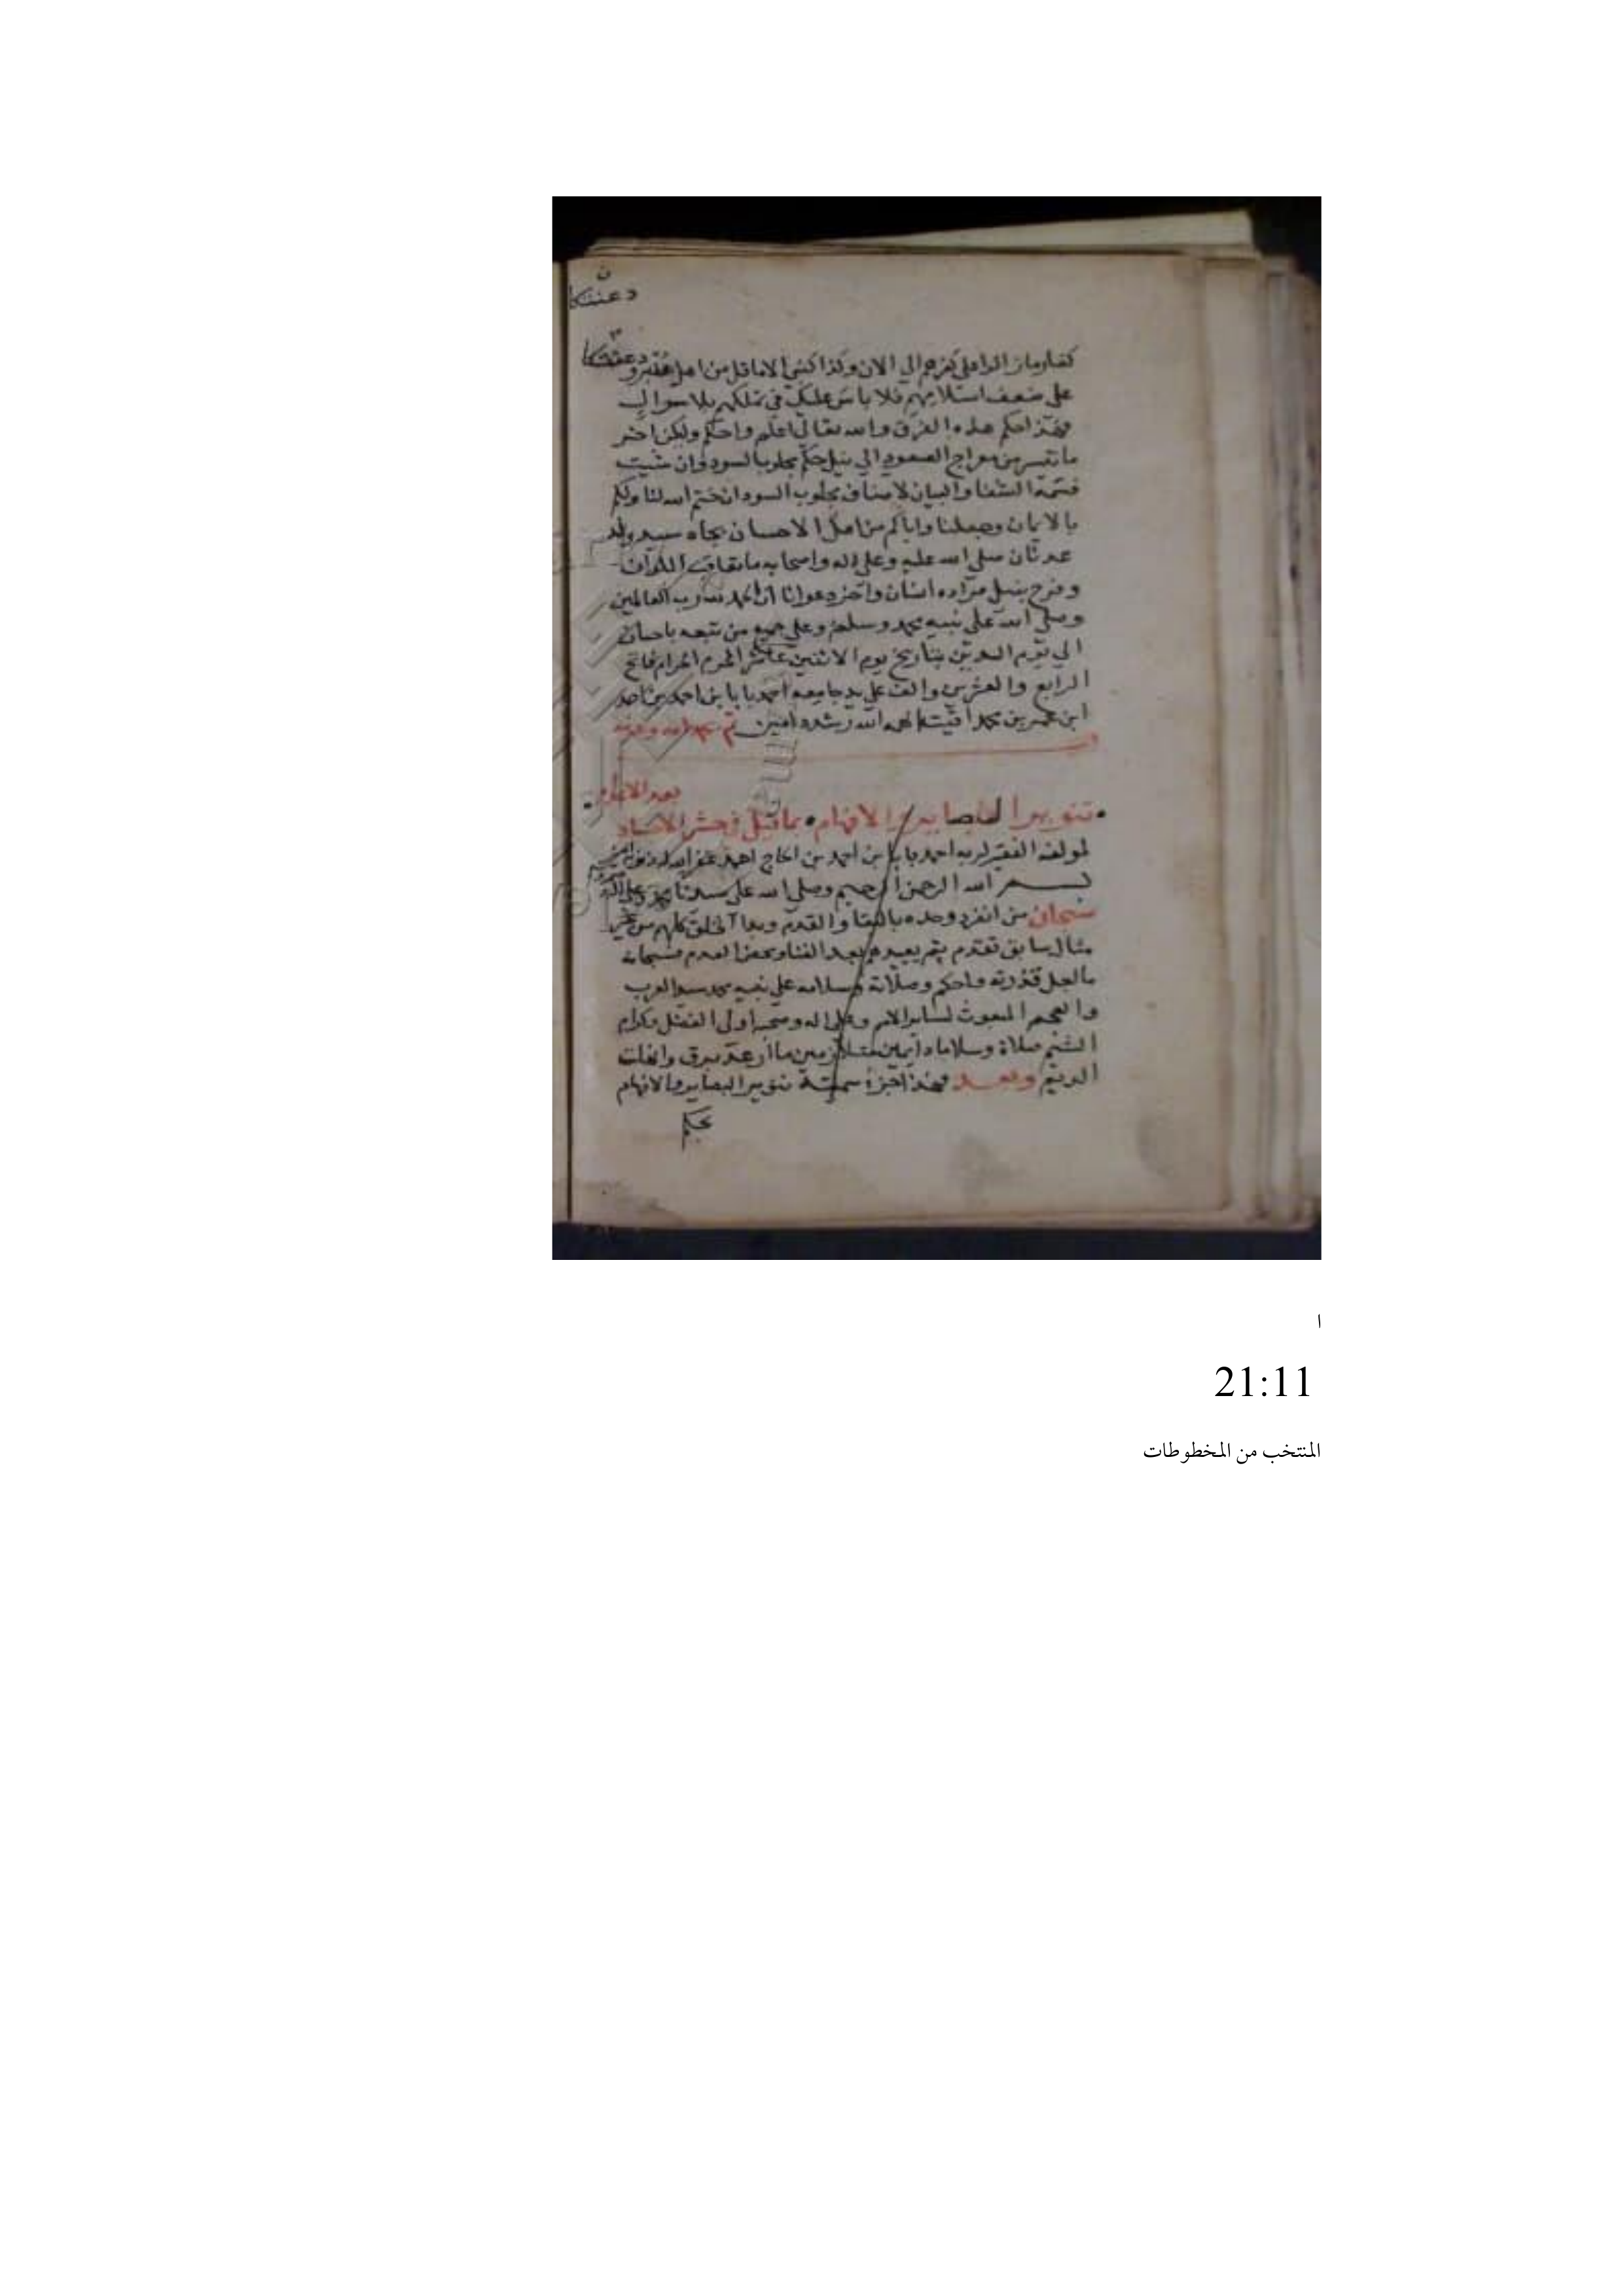 دعنكا
على ضعف اسلامهم فلا باس عليك في تملكهم بلا سوال
فهذا حكم هذه الفرق والله تعالى اعلم واحكم
ما تيسر من معراج الصعود الي نيل حكم مجلوب السود وان شيت
والبيان لاصناف مجلوب السودان ختم الله لنا ولكم
بالايمان وجعلنا واياكم من اهل الاحسان بجاه سيد ولد
عدنان صلي الله عليه وعلي اله واصحابه ما تعاقب
وفرح بنيل مراده انسان واخر دعوانا ان الحمد لله رب العالمين
وصلي الله علي نبيه محمد وسلم وعلي جميع من تبعه باحسان
الي يوم الدين بتاريخ يوم الاثنين عاشر المحرم الحرام فاتح
الرابع والعشرين والف علي يد جامعه احمد بابا بن احمد بن احمد
ابن عمر بن محمد اقيت الهمه الله رشده امين تم بحمد الله وعونه
تنوير البصاير والافهام بما قيل في حشر الاجساد
لمولفه الفقير لربه احمد بابا بن احمد بن الحاج احمد غفر الله له
بسم الله الرحمن الرحيم وصلي الله علي سيدنا محمد وعلي اله
سبحان من انفرد وحده بالبقا والقدم وبدا الخلق كلهم من غير
مثال سابق تقدم ثم يعيدهم بعد الفنا ومحض العدم فسبحانه
ما اجل قدرته واحكم وصلاته وسلامه علي نبيه محمد سيد العرب
والعجم المبعوث لساير الامم وعلي اله وصحبه اولي الفضل وكرام
الشيم صلاة وسلاما دايمين متلازمين ما ارعد برق وانهلت
الديم وبعد فهذا جزء سميته تنوير البصاير والافهام
بحكم
ا
21:11
المنتخب من المخطوطات